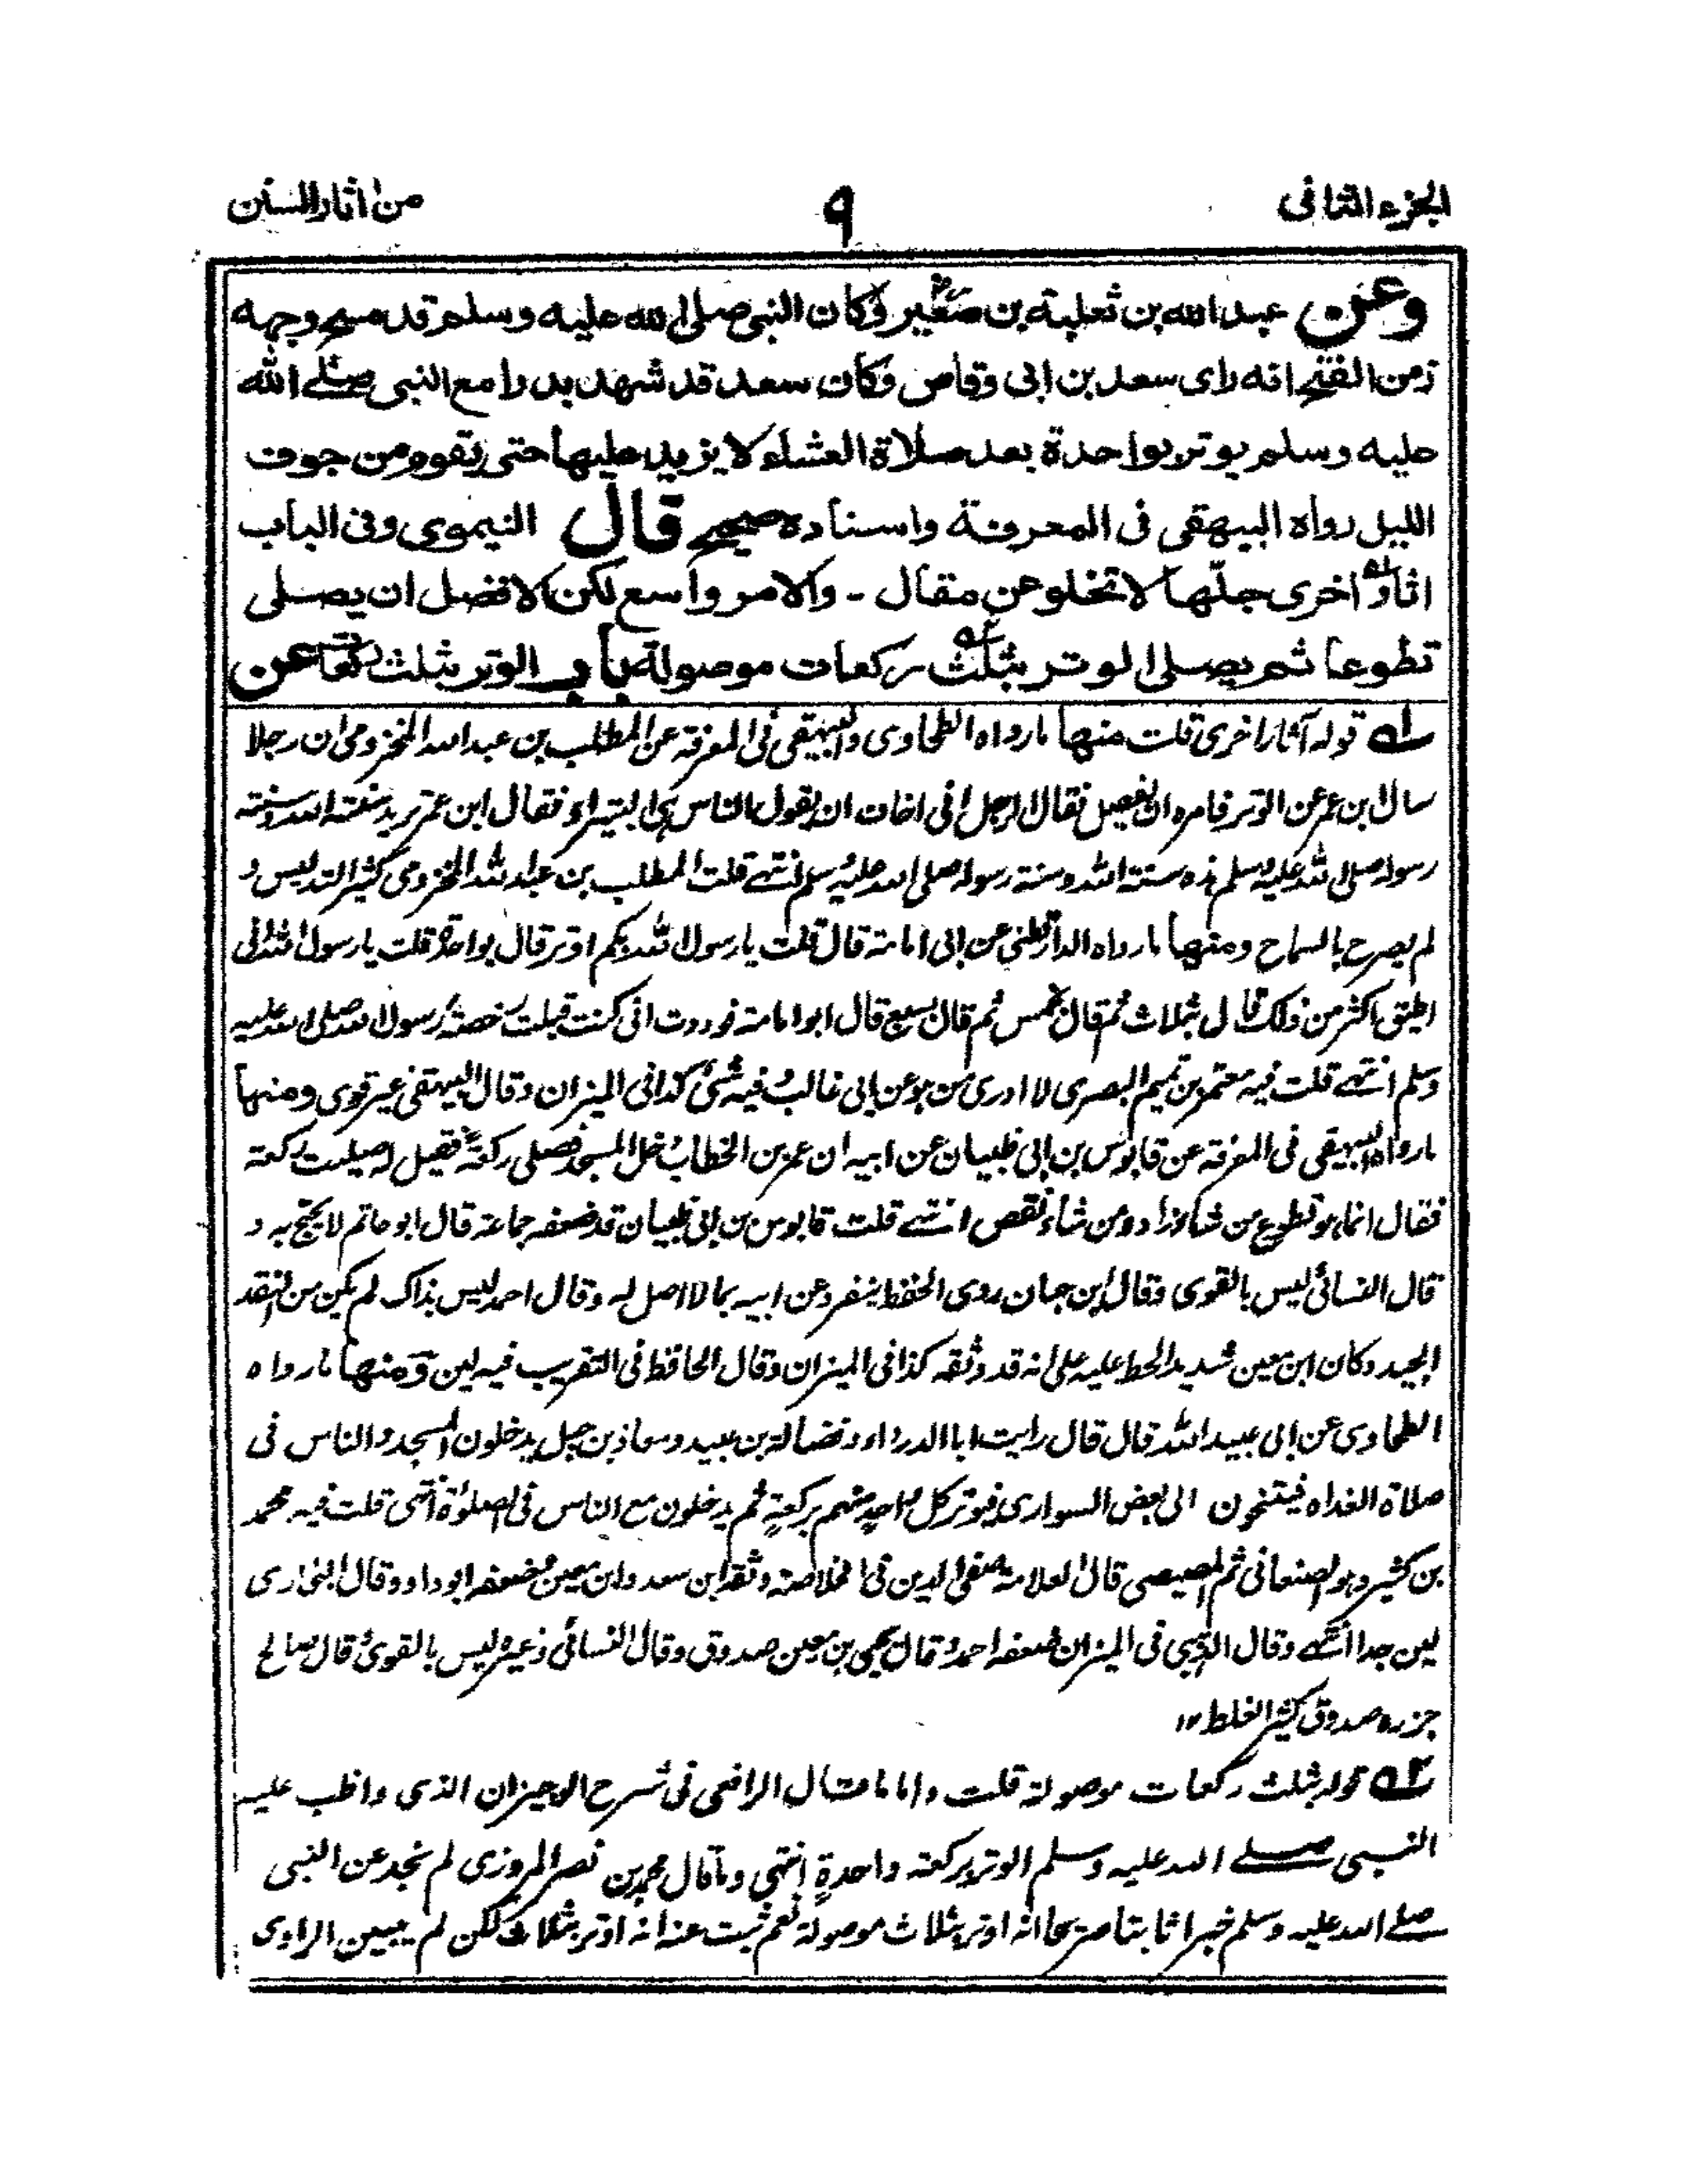 الجزء الثانى
٩
من اثار السنن
وعن عبد الله بن ثعلبة بن صغير وكان النبى صلى الله عليه وسلم قد مسح وجهه
زمن الفتح انه راى سعد بن ابى وقاص وكان سعد قد شهد بدرا مع النبى صلے الله
عليه وسلم يوتر بواحدة بعد صلاة العشاء لا يزيد عليها حتى يقوم من جوف
الليل رواه البيهقى فى المعرفة واسناده صحيح قال النيموى وفى الباب
اثار اخرى جلّها لا تخلو عن مقال - والامر واسع لكن الافضل ان يصلى
تطوعا ثم يصلى الوتر بثلث ركعات موصولة باب الوتر بثلث ركعات عن
۱ه قوله آثار اخرى قلت منها ما رواه الطحاوى والبيهقى فى المعرفة عن المطلب بن عبد الله المخزومى ان رجلا
سال ابن عمر عن الوتر فامره ان يفصل فقال الرجل انى اخاف ان يقول الناس هى البتيراء فقال ابن عمر تريد سنة الله وسنة
رسوله صلى الله عليه وسلم هذه سنة الله وسنة رسوله صلى الله عليه وسلم انتهے قلت المطلب بن عبد الله المخزومى كثير التدليس و
لم يصرح بالسماع ومنها ما رواه الدارقطنى عن ابى امامة قال قلت يا رسول الله بكم اوتر قال بواحدة قلت يا رسول الله انى
اطيق اكثر من ذلك قال بثلاث ثم قال بخمس ثم قال بسبع قال ابو امامة فوددت انى كنت قبلت رخصة رسول الله صلى الله عليه
وسلم انتهے قلت فيه معتمر بن تميم البصرى لا ادرى من هو عن ابى غالب وفيه شئ كذا فى الميزان وقال البيهقى غير قوى ومنها
ما رواه البيهقى فى المعرفة عن قابوس بن ابى ظبيان عن ابيه ان عمر بن الخطاب دخل المسجد فصلى ركعة فقيل له صليت ركعة
فقال انما هو تطوع من شاء زاد ومن شاء نقص انتهے قلت قابوس بن ابى ظبيان قد ضعفه جماعة قال ابو حاتم لا يحتج به و
قال النسائى ليس بالقوى وقال ابن حبان ردى الحفظ ينفرد عن ابيه بما لا اصل له وقال احمد ليس بذاك لم يكن من النقد
الجيد وكان ابن معين شديد الحط عليه على انه قد وثقه كذا فى الميزان وقال الحافظ فى التقريب فيه لين ومنها ما رواه
الطحاوى عن ابى عبيد الله قال قال رايت ابا الدرداء وفضالة بن عبيد ومعاذ بن جبل يدخلون المسجد والناس فى
صلاة الغداه فيتنحون الى بعض السوارى فيوتر كل واحد منهم بركعة ثم يدخلون مع الناس فى الصلوٰة انتهى قلت فيه محمد
بن كثير وهو الصنعانى ثم المصيصى قال العلامة صفى الدين فى الخلاصة وثقه ابن سعد وابن معين وضعفه ابو داود وقال البخارى
لين جدا انتهے وقال الذهبى فى الميزان ضعفه احمد وقال يحيى بن معين صدوق وقال النسائى وغيره ليس بالقوى وقال صالح
جزره صدوق كثير الغلط ۱۲
۲ه قوله بثلث ركعات موصولة قلت واما ما قال الرافعى فى شرح الوجيز ان الذى واظب عليه
النبى صلے الله عليه وسلم الوتر بركعة واحدة انتهى وما قال محمد بن نصر المروزى لم نجد عن النبى
صلے الله عليه وسلم خبرا ثابتا صريحا انه اوتر بثلاث موصولة نعم ثبت عنه انه اوتر بثلاث لكن لم يبين الراوى